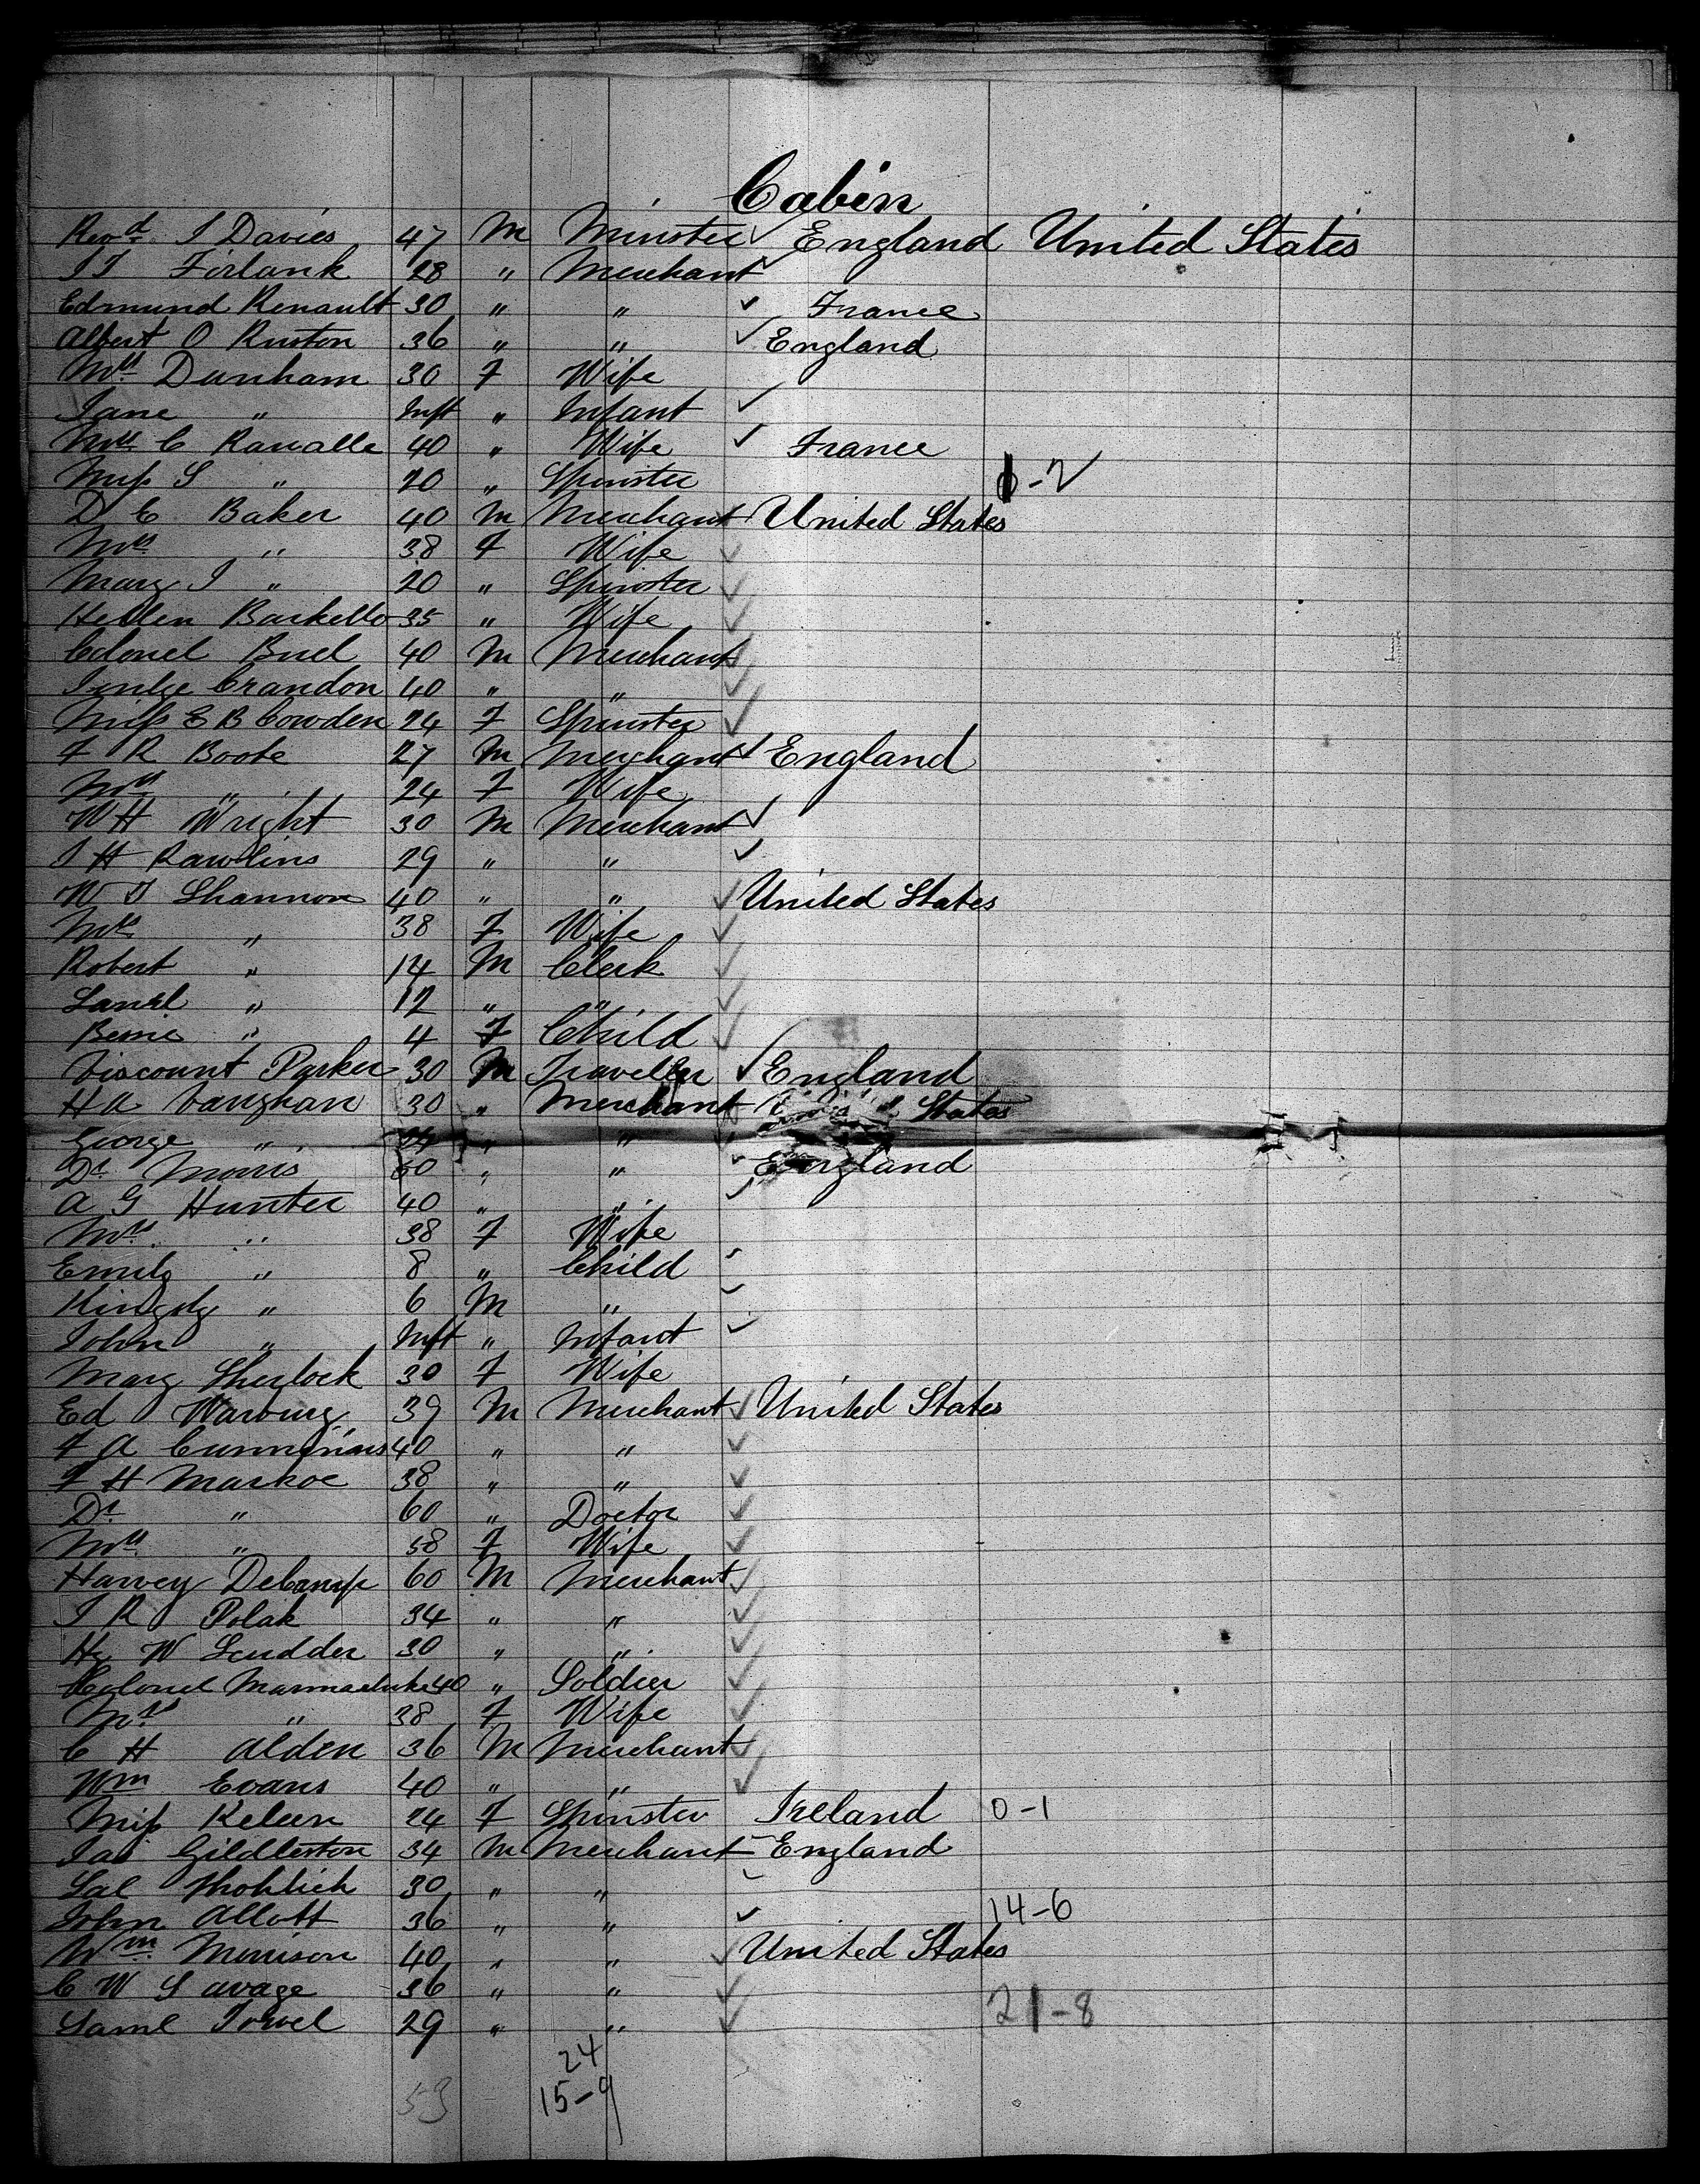 Cabin
Revd. J Davies 47 M Minster England United States
J T Firbank 28 " Merchant
Edmund Renault 30 " " France
Albert O Ruston 36 " " England
Mrs. Dunham 30 F Wife
Jane " Inft " Infant
Mrs C Ravalle 40 " Wife France
Miss S " 20 " Spinster 0-2
D E Baker 40 M Merchant United States
Mrs " 38 F Wife
Mary J " 20 " Spinster
Hellen Barkello 35 " Wife
Colonel Buel 40 M Merchant
Judge Crandon 40 " "
Miss E B Cowden 24 F Spinster
F R Boote 27 M Merchant England
Mrs " 24 F Wife
W H Wright 30 M Merchant
J H Rawlins 29 " "
W J Shannon 40 " " United States
Mrs " 38 F Wife
Robert " 14 M Clerk
Saml " 12 " "
" 4 F Child
Viscount Parker 30 M Traveller England
H A Vaughan 30 " Merchant States
George " 24 " "
Dr Morris 60 " " England
A G Hunter 40 " "
Mrs. " 38 F Wife
Emily " 8 " Child
" 6 M "
John " Inft " Infant
Mary Sherlock 30 F Wife
Ed Waring 39 M Merchant United States
F A Cummins 40 " "
F H Markoe 38 " "
Dr " 60 " Doctor
Mrs. " 58 F Wife
Harvey Decamp 60 M Merchant
J R Polak 34 " "
Hy W Scudder 30 " "
Colonel Marmaduke 40 " Soldier
Mrs " 38 F Wife
C H Alden 36 M Merchant
Wm Evans 40 " "
Miss Keleen 24 F Spinster Ireland 0-1
Jas Gildlerton 34 M Merchant England
Sal 30 " "
John Allott 36 " " 14-6
Wm. Morrison 40 " " United States
C W Savage 36 " "
Saml 29 " " 21-8
24
53 15-9